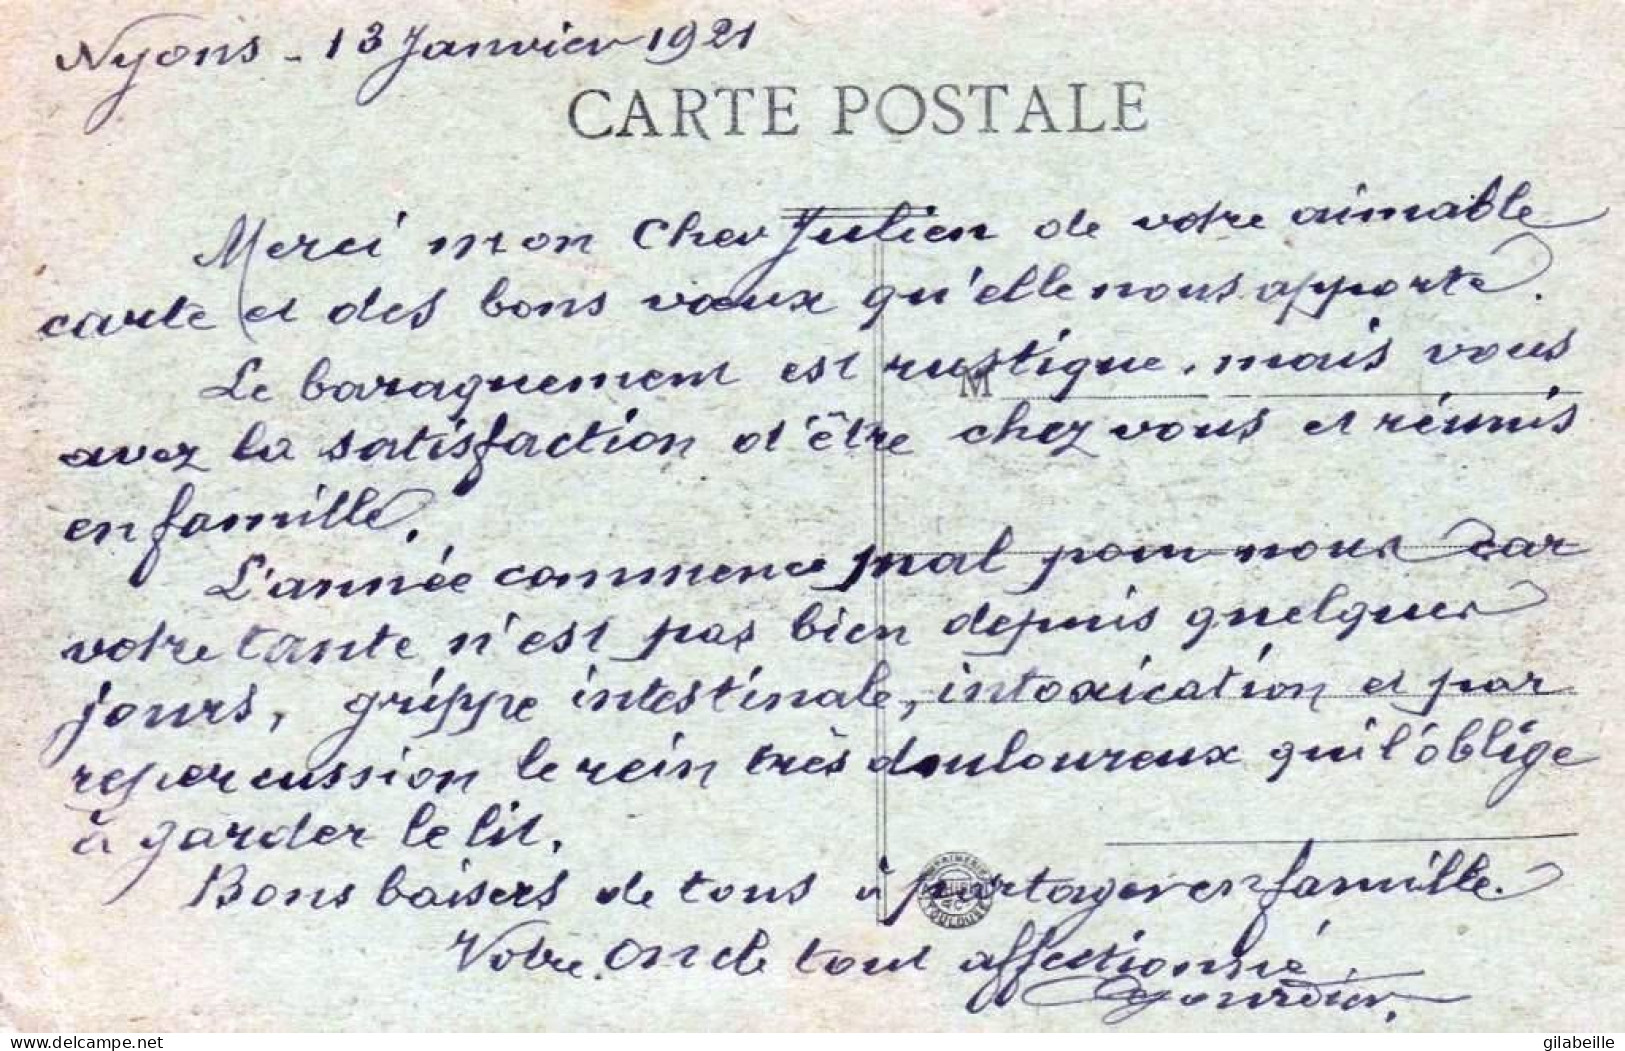 Nyons - 13 Janvier 1921
CARTE POSTALE
Merci mon Cher Julien de votre aimable
carte et des bons vœux qu'elle nous apporte.
Le baraquement est rustique, mais vous
M
avez la satisfaction d'être chez vous et réunis
en famille.
L'année commence mal pour nous car
votre tante n'est pas bien depuis quelques
jours, grippe intestinale, intoxication et par
repercussion le rein très douloureux qui l'oblige
à garder le lit.
Bons baisers de tous à partager en famille.
Votre Oncle tout affectionné
delcampe.net
gilabeille